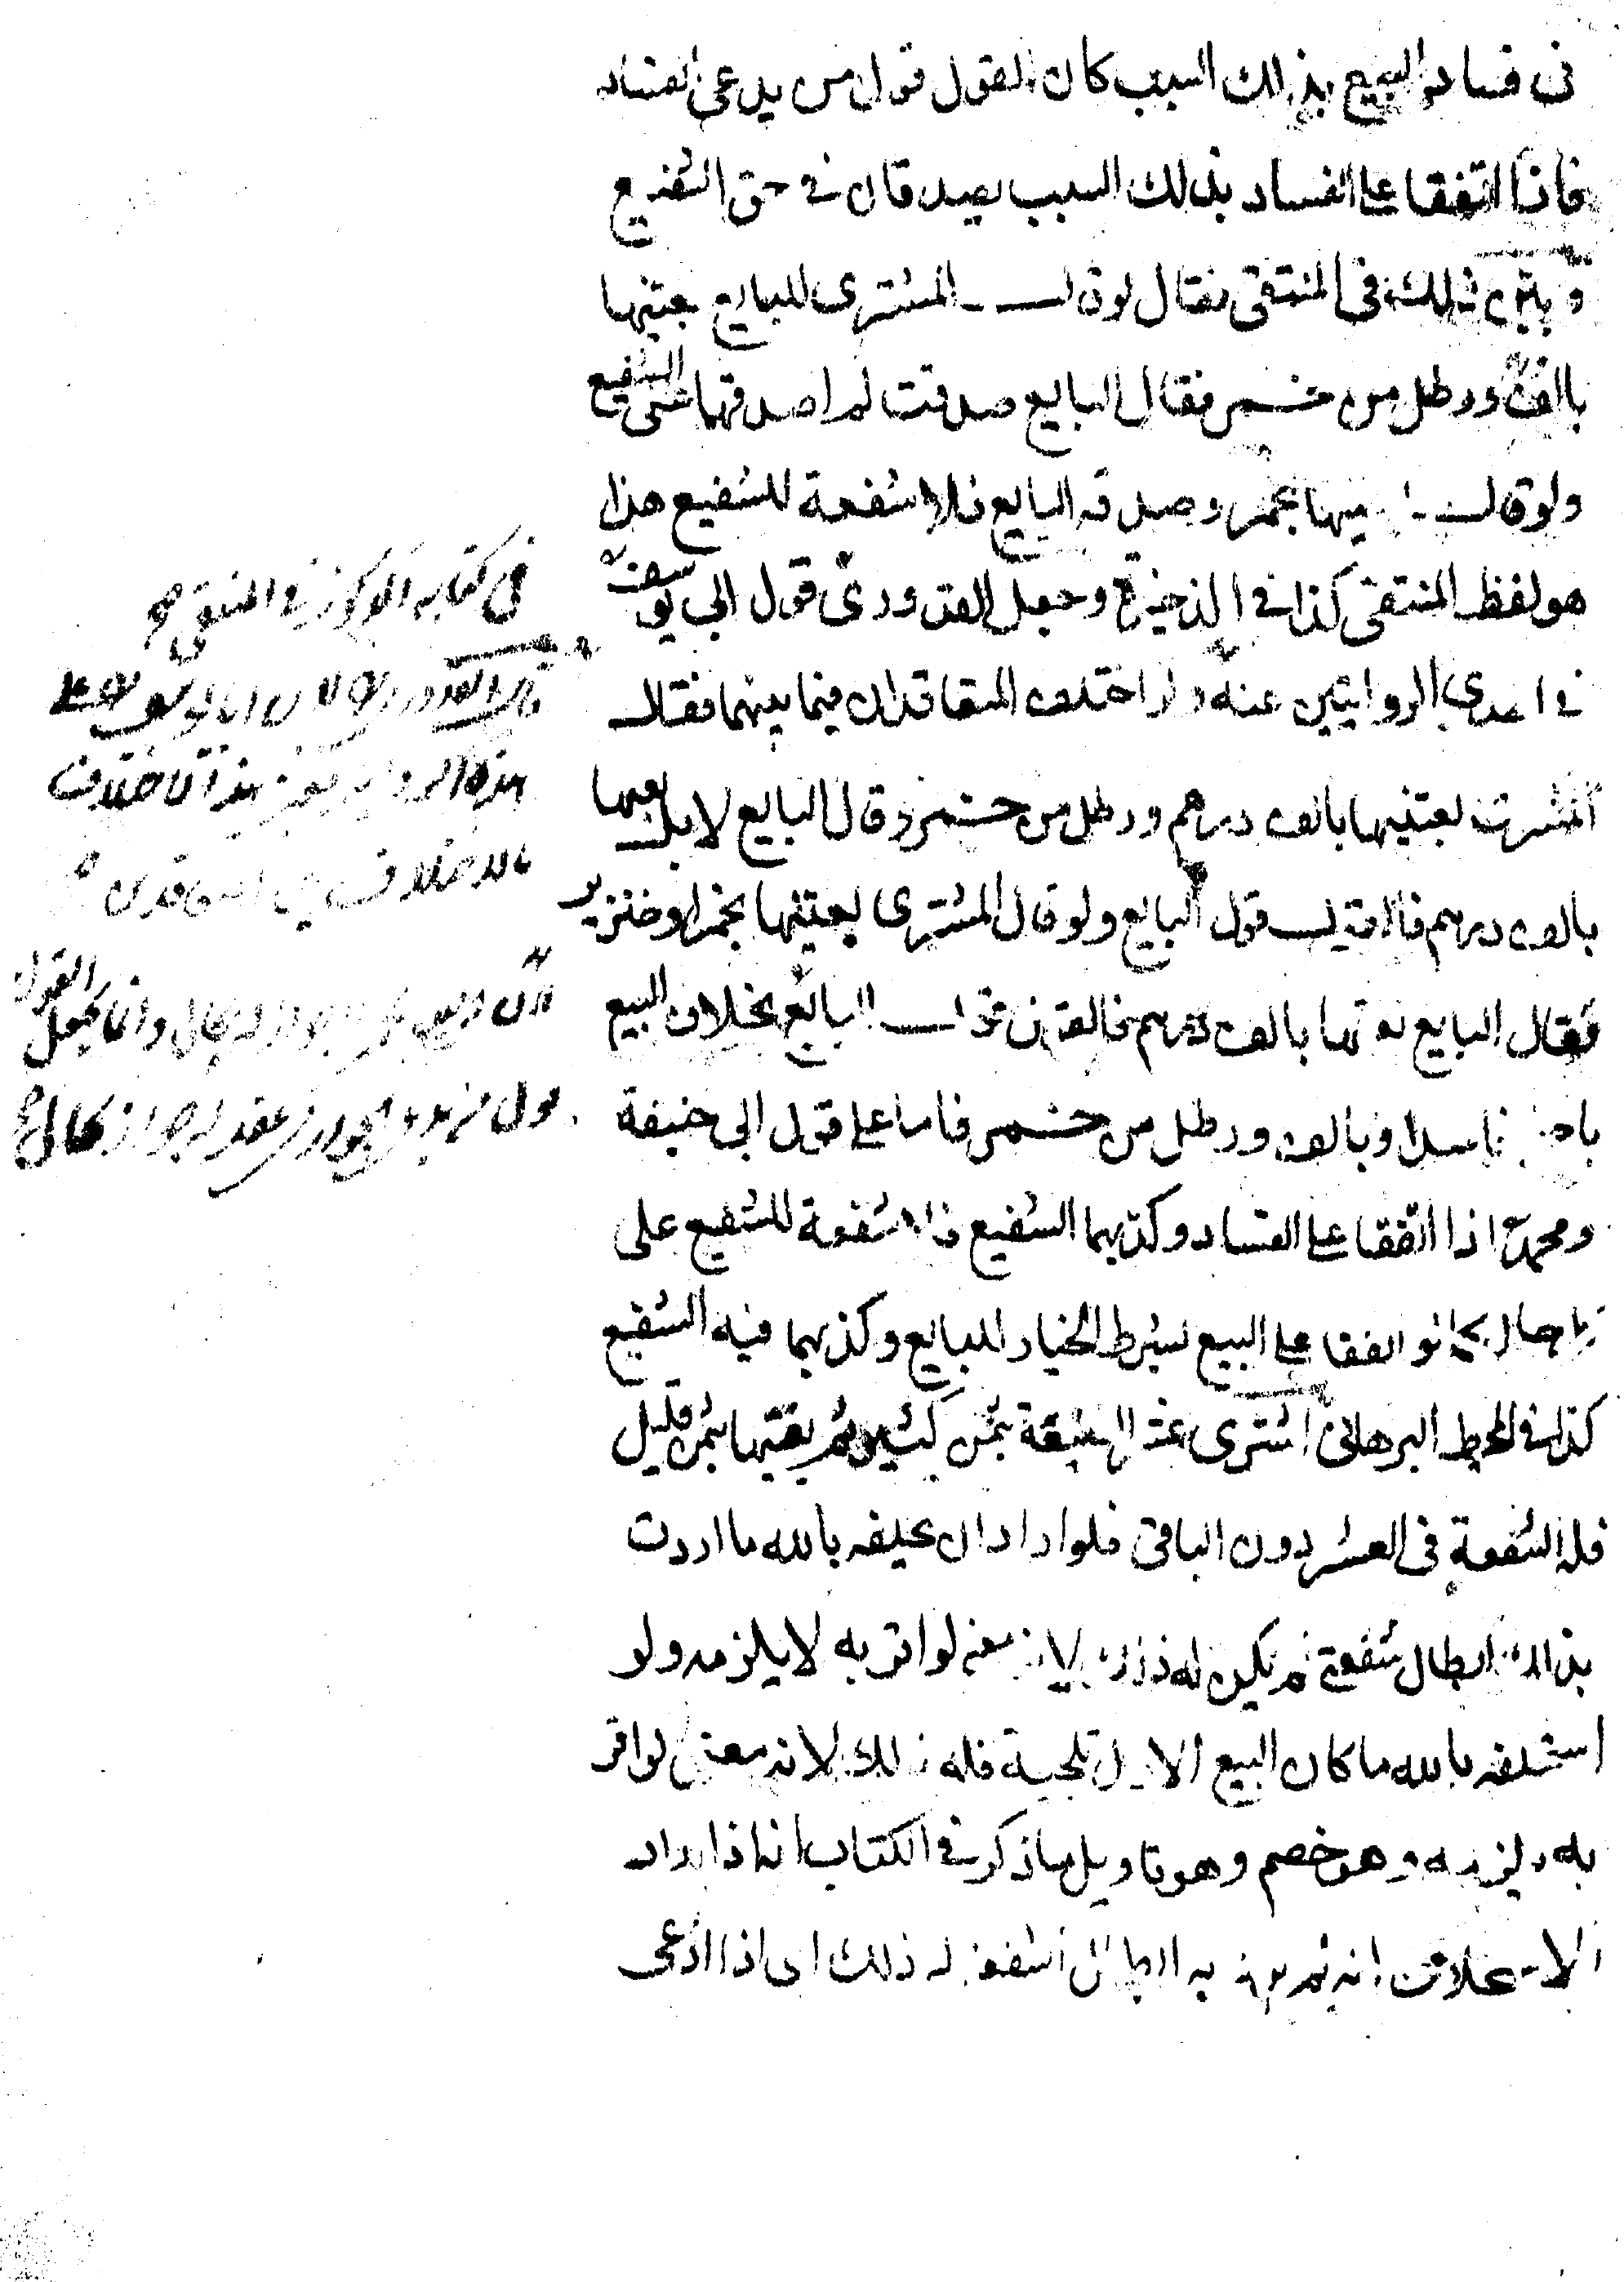 في فساد البيع بذلك السبب كان القول قول من يدعي الفساد
فاذا اتفقا على الفساد بذلك السبب يصدقان في حق الشفيع
ذلك في المنتقى فقال لو قال المشتري للبايع بعتنيها
بالف ورطل من خمر فقال البايع صدقت لم اصدقهما على الشفيع
ولو قال بخمر وصدقه البايع فلا شفعة للشفيع هذا
هو لفظ المنتقى كذا في الذخيرة وجعل القدوري قول ابي يوسف
في احدي الروايتين عنه ولو اختلف المتعاقدان فيما بينهما فقال
المشتري بعتنيها بالف درهم ورطل من خمر وقال البايع لا بل بعتها
بالف درهم فالقول قول البايع ولو قال المشتري بعتنيها بخمر او خنزير
فقال البايع بعتها بالف درهم فالقول قول البائع بخلاف البيع
فاسدا وبالف ورطل من خمر فاما على قول ابي حنيفة
ومحمد اذا اتفقا على الفساد وكذبهما الشفيع فلا شفعة للشفيع على
كل حال كما لو اتفقا على البيع بشرط الخيار للبايع وكذبهما فيه الشفيع
كذا في المحيط البرهاني اشترى عشر الضيعة بثمن كثير ثم بقيتها بثمن قليل
فله الشفعة في العشر دون الباقي فلو اراد ان يحلفه بالله ما اردت
بذلك ابطال شفعتي لم يكن له ذلك لانه معنى لو اقر به لا يلزمه ولو
استحلفه بالله ما كان البيع الاول تلجية فله ذلك لانه معنى لو اقر
به يلزمه وهو خصم وهو تاويل ما ذكر في الكتاب انه اذا اراد
الاستحلاف انه لم يرد به ابطال الشفعة له ذلك اى اذا ادعى
في كتابه المذكور في المنتقى
هذه الرواية هذا الاختلاف
بالاختلاف بين المتعاقدين
وانما يجعل القول
قول من يدعي الجواز في عقد له جواز بحال